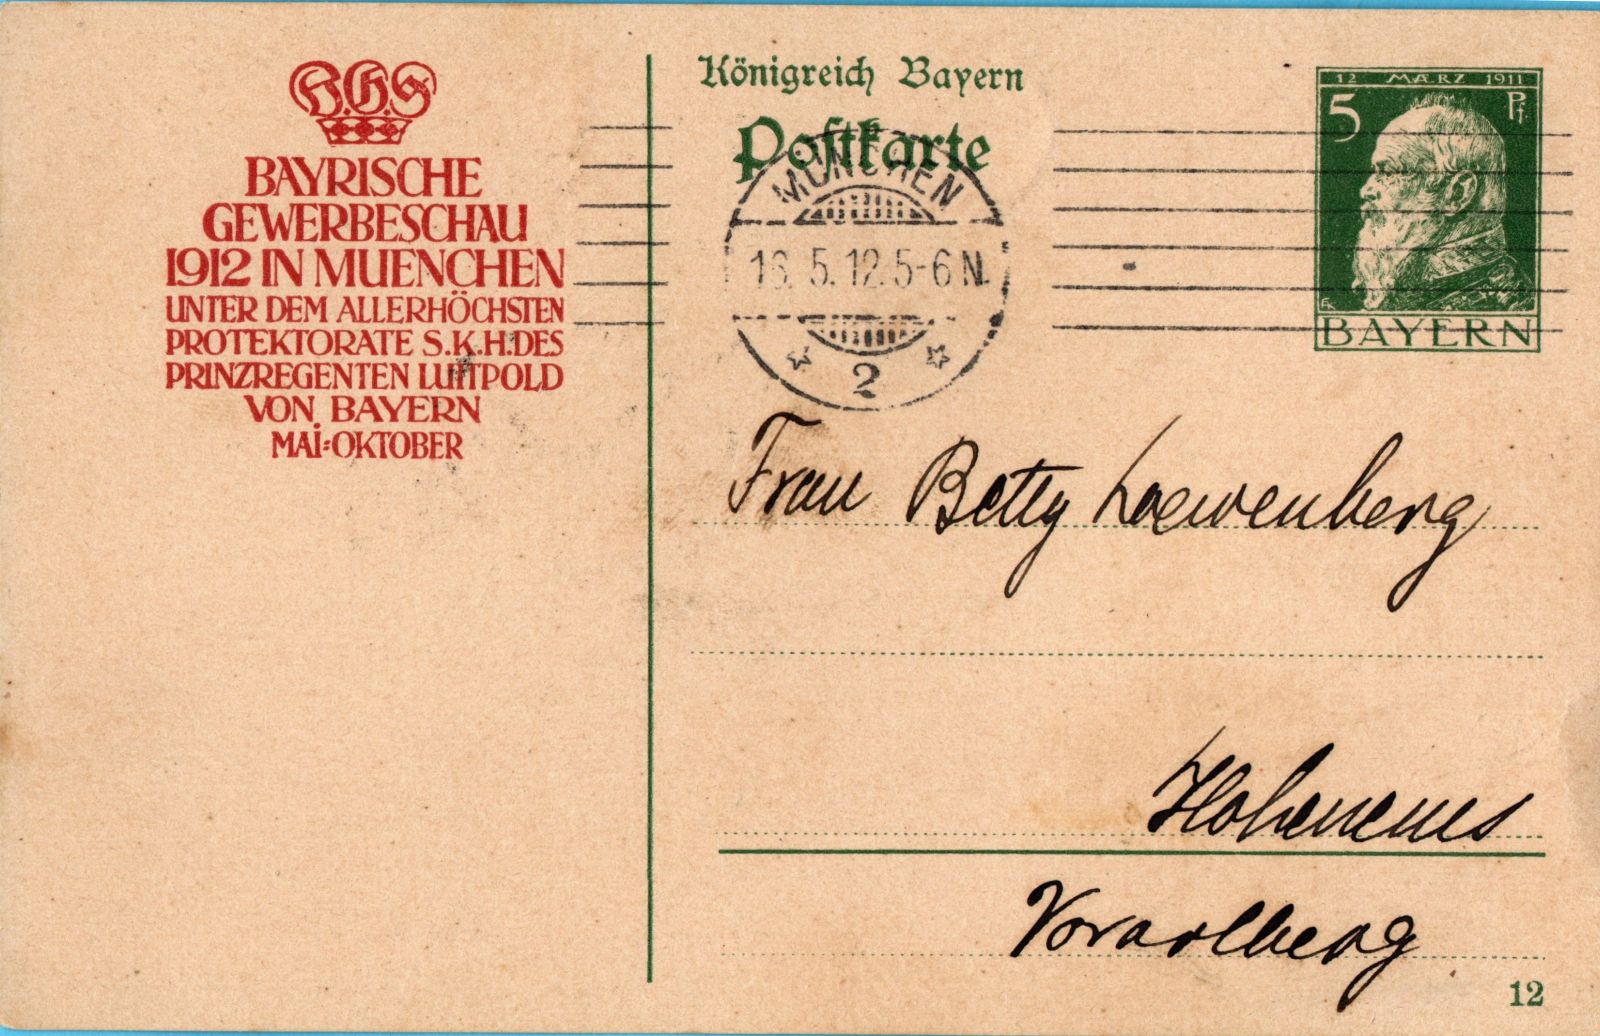 B.G.S
BAYRISCHE
GEWERBESCHAU
1912 IN MUENCHEN
UNTER DEM ALLERHÖCHSTEN
PROTEKTORATE S.K.H. DES
PRINZREGENTEN LUITPOLD
VON BAYERN
MAI-OKTOBER
Königreich Bayern
Postkarte
MÜNCHEN
5.12.5-6 N.
2
12 MÆRZ 1911
5 Pf.
BAYERN
Frau Betty Loewenberg
Hohenems
Vorarlberg
12